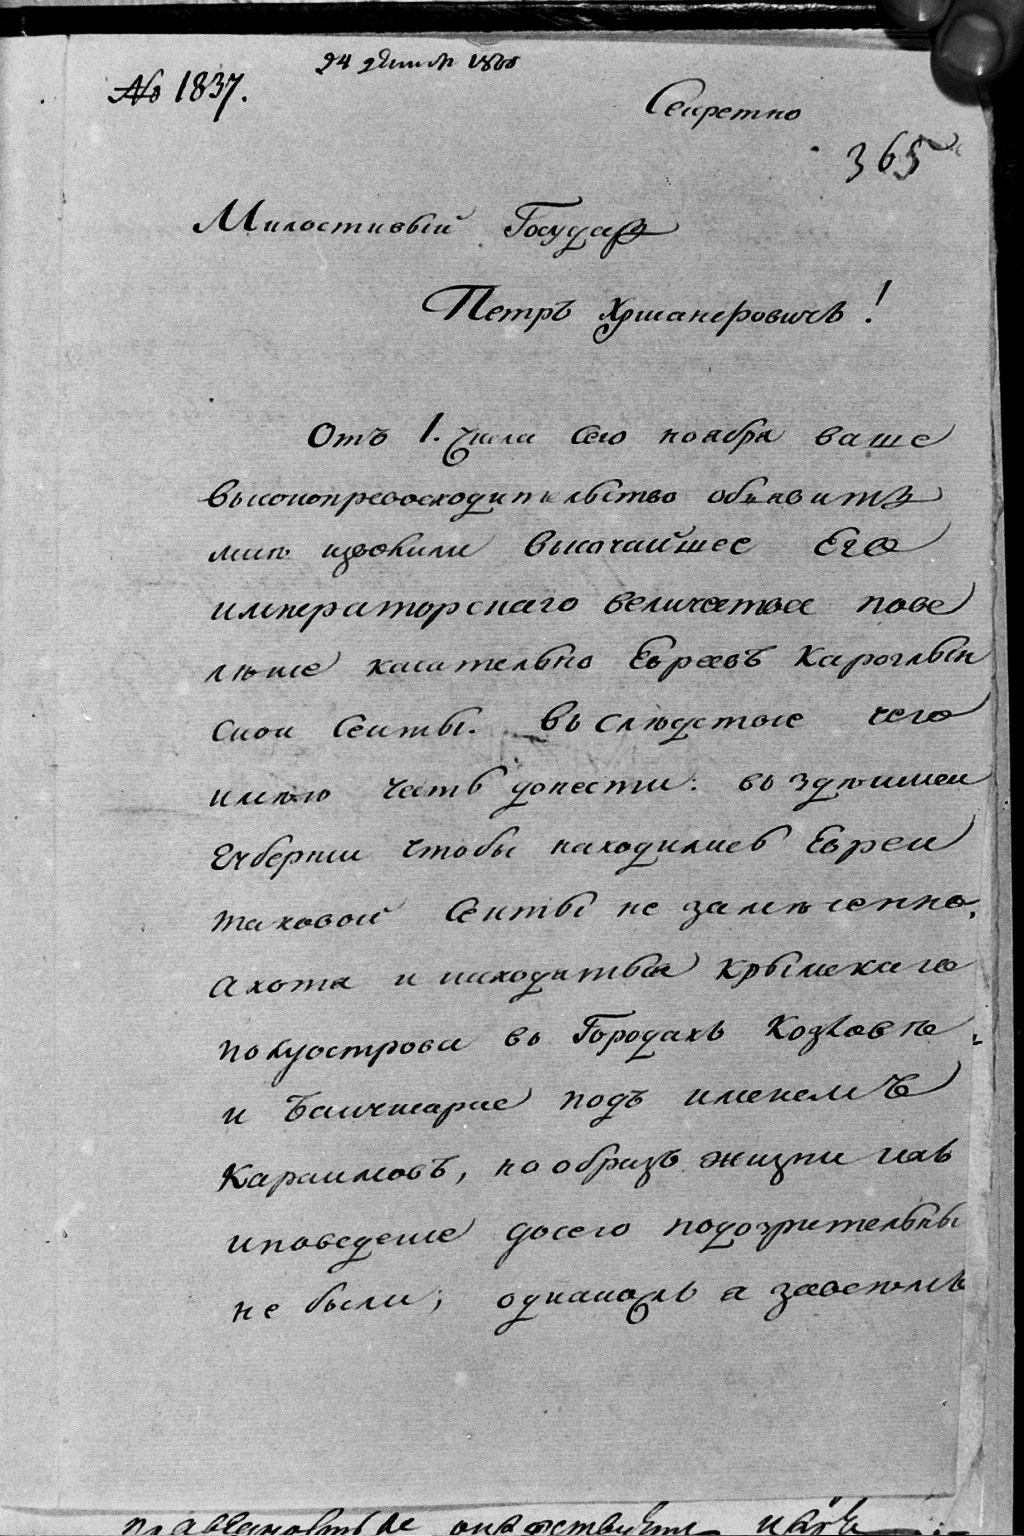 24 1800
№ 1837.
Секретно
365
Милостивый Государь
Петръ Хрисанфовичъ!
Отъ 1. числа сего ноября ваше
высокопревосходительство объявить
мнѣ изволили высочайшее Его
императорскаго величества пове
лѣние касательно Евреевъ Кароглын
ской Секты. въ слѣдствие чего
имѣю честь донести: въ здѣшней
Губернии чтобы находились Евреи
таковой Секты не замѣченно.
а хотя и находятся крымскаго
полуострова въ Городахъ Козловѣ
и Бакчисарае подъ именемъ
Караимовъ, но образъ жизни ихъ
и поведение досего подозрительны
не были; однакожъ я за всемъ